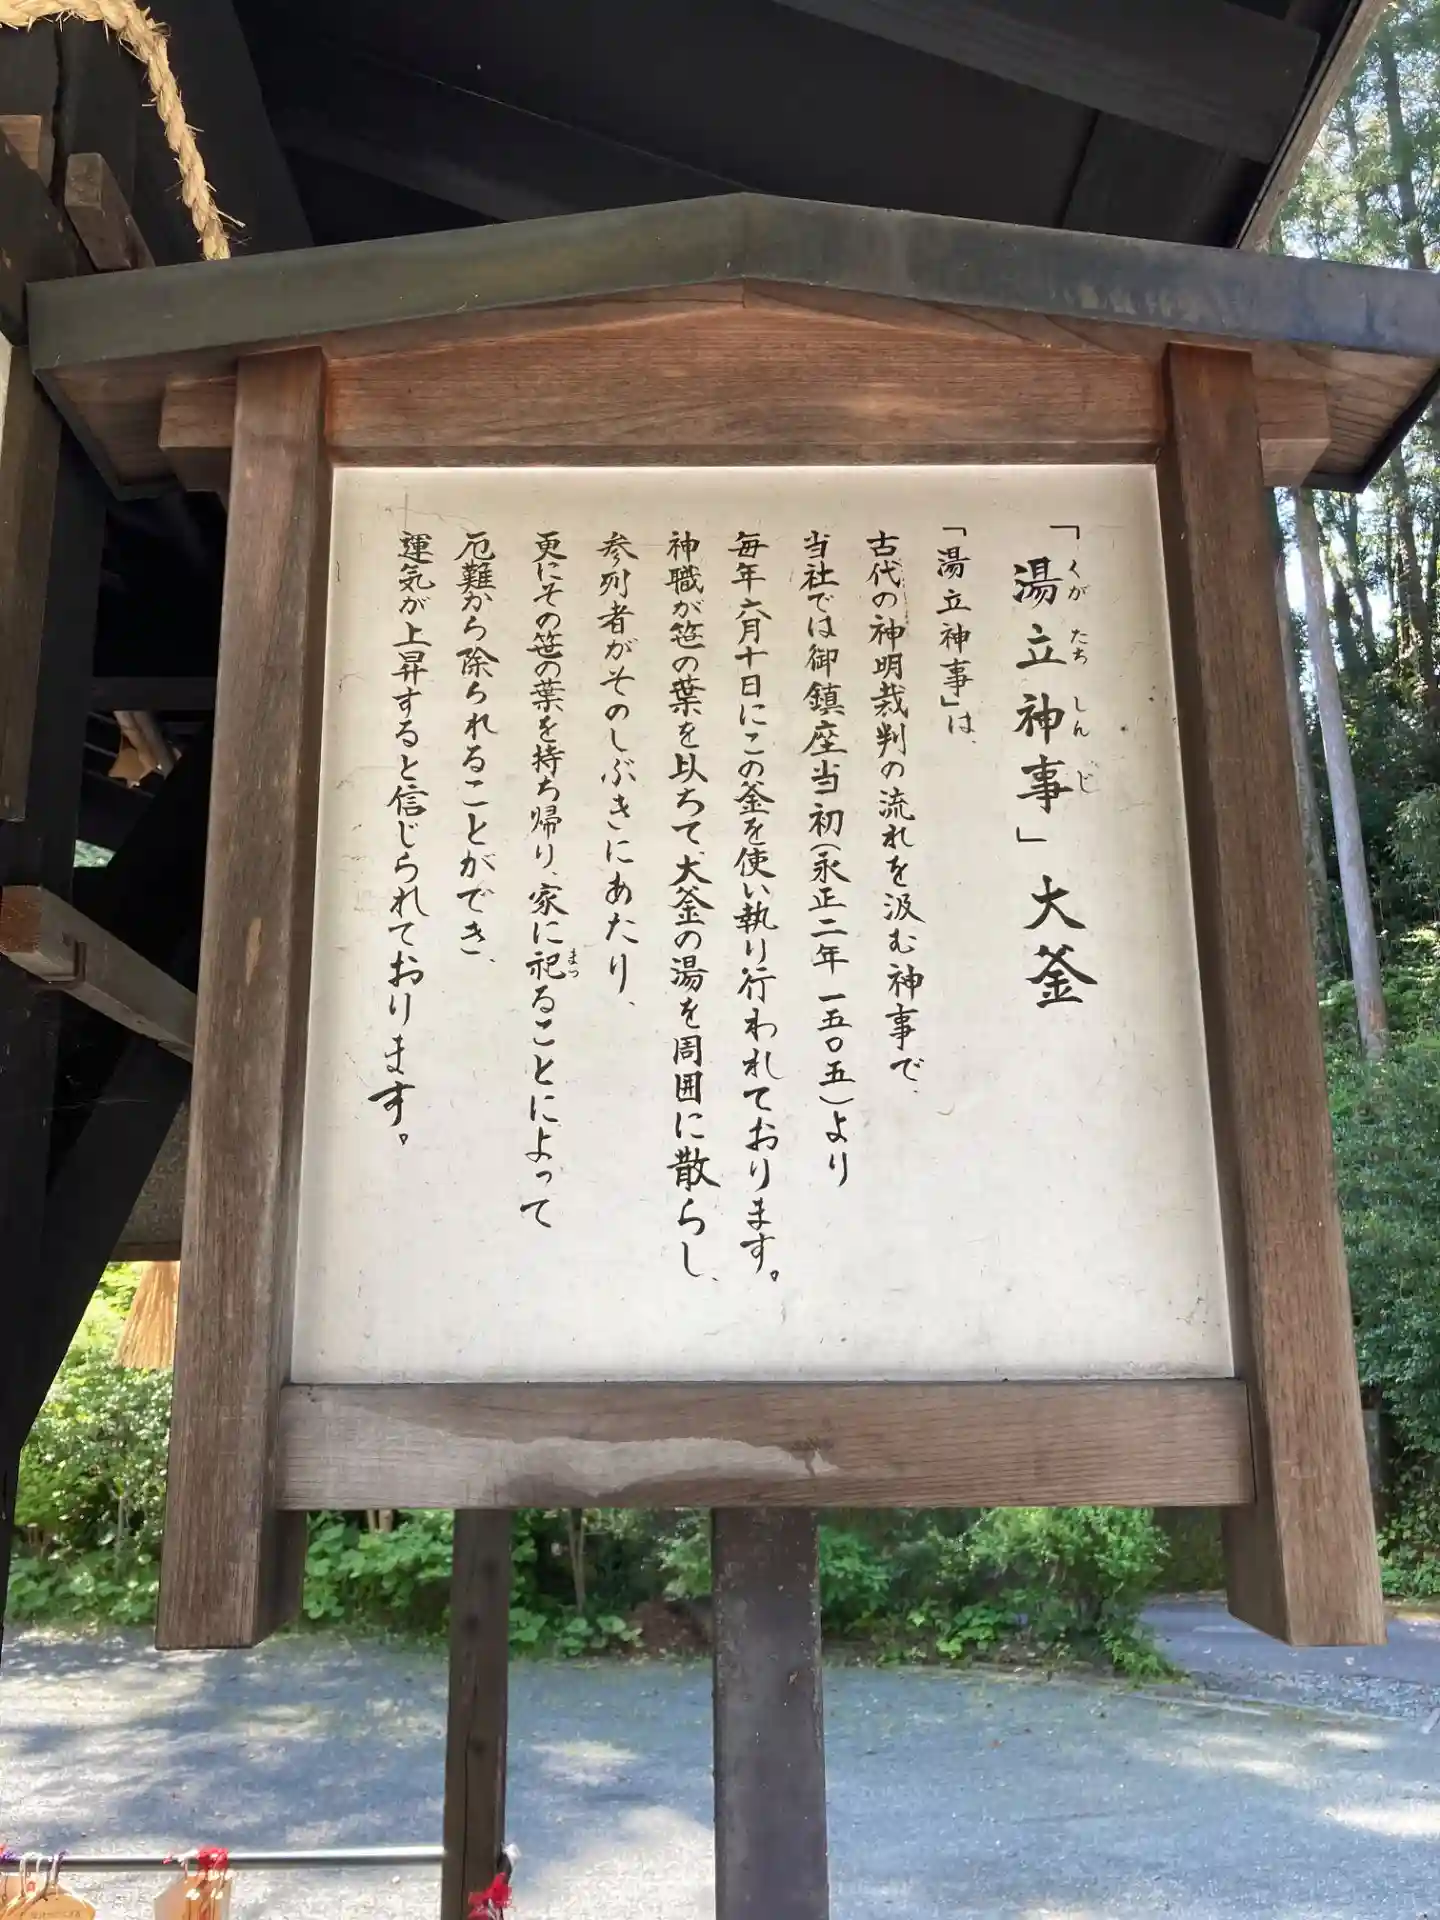 「湯立神事」大釜
くがたちしんじ
「湯立神事」は、
古代の神明裁判の流れを汲む神事で、
当社では御鎮座当初(永正二年 一五〇五)より
毎年六月十日にこの釜を使い執り行われております。
神職が笹の葉を以ちて、大釜の湯を周囲に散らし、
参列者がそのしぶきにあたり、
更にその笹の葉を持ち帰り、家に祀ることによって
まつ
厄難から除られることができ、
運気が上昇すると信じられております。